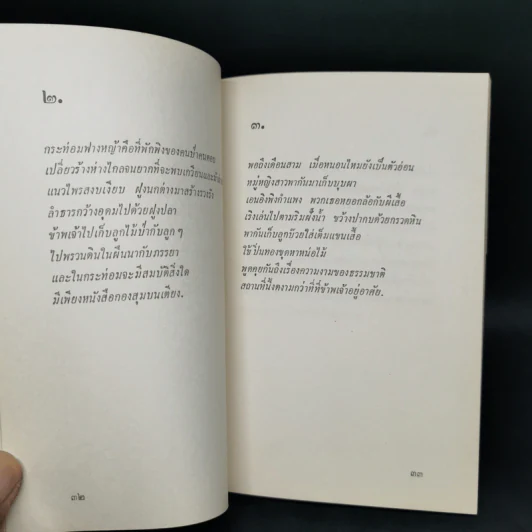 ๒.
กระท่อมฟางหญ้าคือที่พักพิงของคนป่าคนดอย
เปลี่ยวร้างห่างไกลจนยากที่จะพบเกวียนและม้า
แนวไพรสงบเงียบ ฝูงนกต่างมาสร้างรวงรัง
ลำธารกว้างอุดมไปด้วยฝูงปลา
ข้าพเจ้าไปเก็บลูกไม้ป่ากับลูกๆ
ไปพรวนดินในผืนนากับภรรยา
และในกระท่อมจะมีสมบัติสิ่งใด
มีเพียงหนังสือกองสุมบนเตียง.
๓๒
๓.
พอถึงเดือนสาม เมื่อหนอนไหมยังเป็นตัวอ่อน
หมู่หญิงสาวพากันมาเก็บบุบผา
เอนอิงพิงกำแพง พวกเธอหยอกล้อกับผีเสื้อ
เริงเล่นไปตามริมฝั่งน้ำ ขว้างปากบด้วยกรวดหิน
พากันเก็บลูกบ๊วยใส่เต็มแขนเสื้อ
ใช้ปิ่นทองขุดหาหน่อไม้
พูดคุยกันถึงเรื่องความงามของธรรมชาติ
สถานที่นี้งดงามกว่าที่ที่ข้าพเจ้าอยู่อาศัย.
๓๓